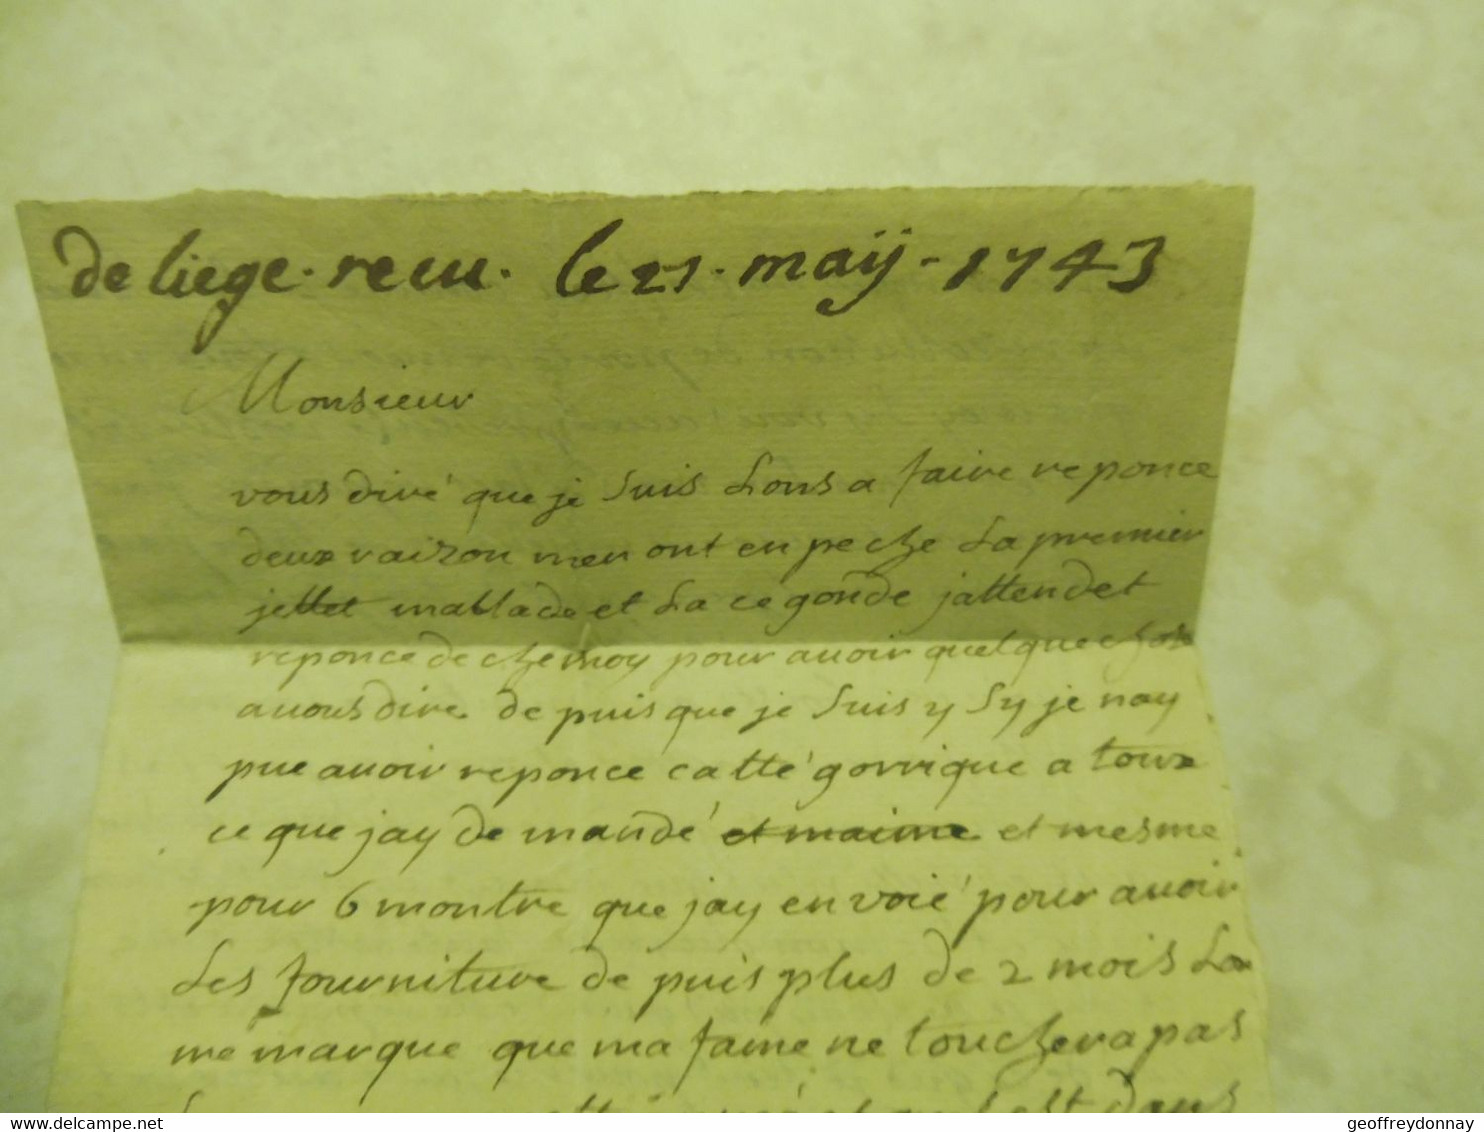 de liege. recu. le 21. maÿ - 1743
Monsieur
vous diré que je suis Lons a faire reponce
deux raizon men ont enpeche La premier
jettet mablade et La cegonde jattendet
reponce de chemoy pour avoir quelque chose
a vous dire de puis que je suis y sy je nay
pue avoir reponce catté gorrique a toux
ce que jay de mandé et maime et mesme
pour 6 montre que jay en voié pour avoir
Les fourniture de puis plus de 2 mois La
me marque que ma fame ne touchera pas
est dans
geoffreydonnay